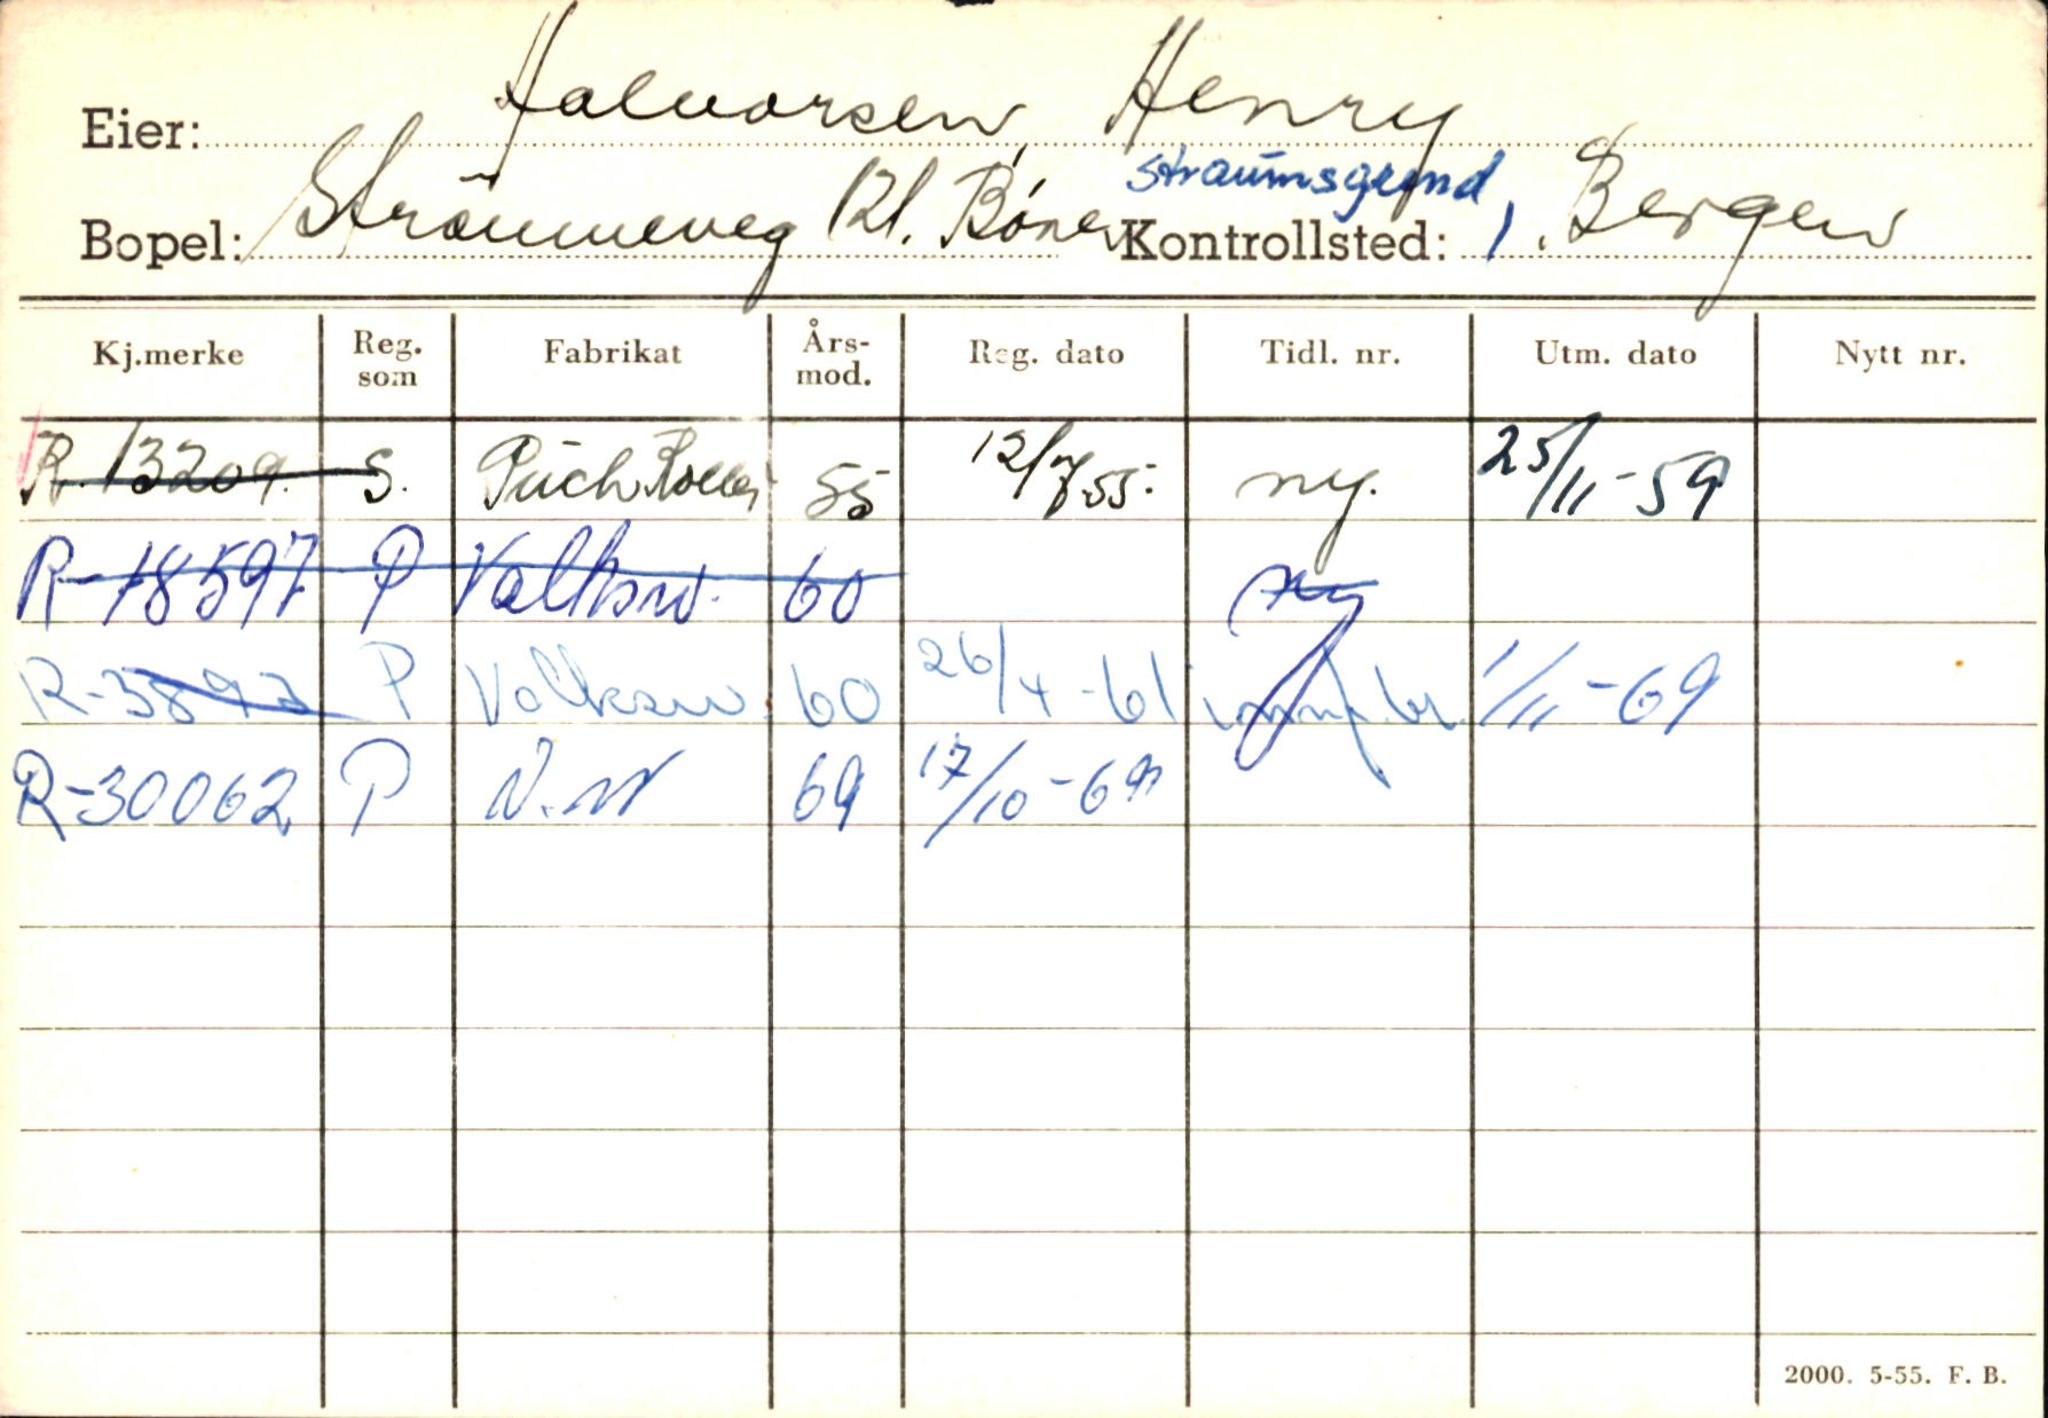 Eier: Halvorsen, Henry
Straumsgrend
Bopel: Straumeveg 121. Bönes Kontrollsted: 1. Bergen
Kj.merke Reg. som Fabrikat Års-mod. Reg. dato Tidl. nr. Utm. dato Nytt nr.
R. 13209. S. Puch Roller 55 12/7 55. ny. 25/11-59
R-18597 P Volksw. 60 ny
R-3897 P Volksw. 60 26/4-61 1/11-69
R-30062 P V.W 69 17/10-69
2000. 5-55. F. B.